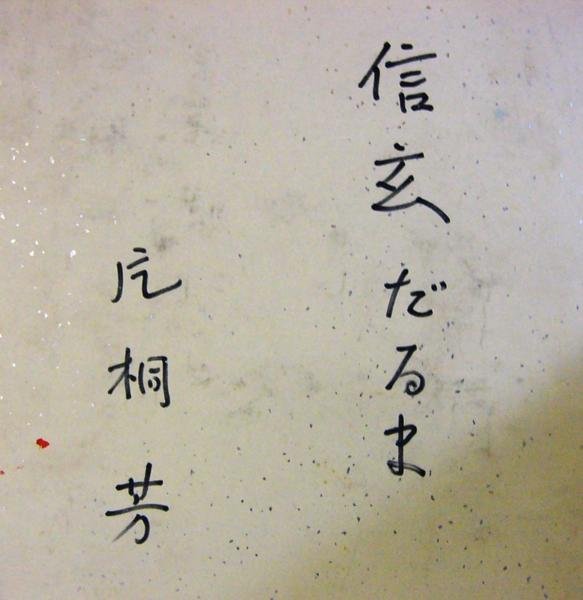 信玄だるま
片桐芳